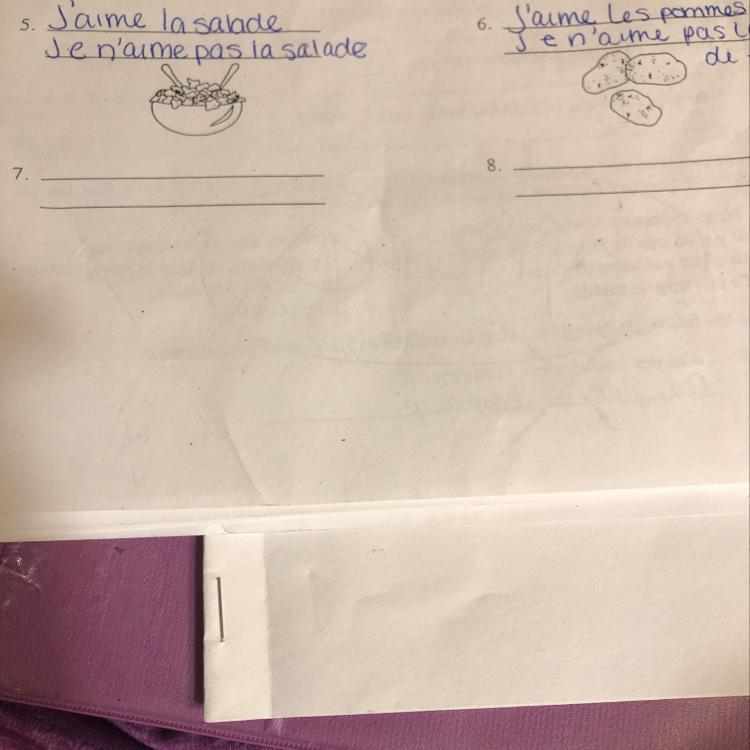 5. J'aime la salade
Je n'aime pas la salade
6. J'aime les pommes
Je n'aime pas
de
7.
8.